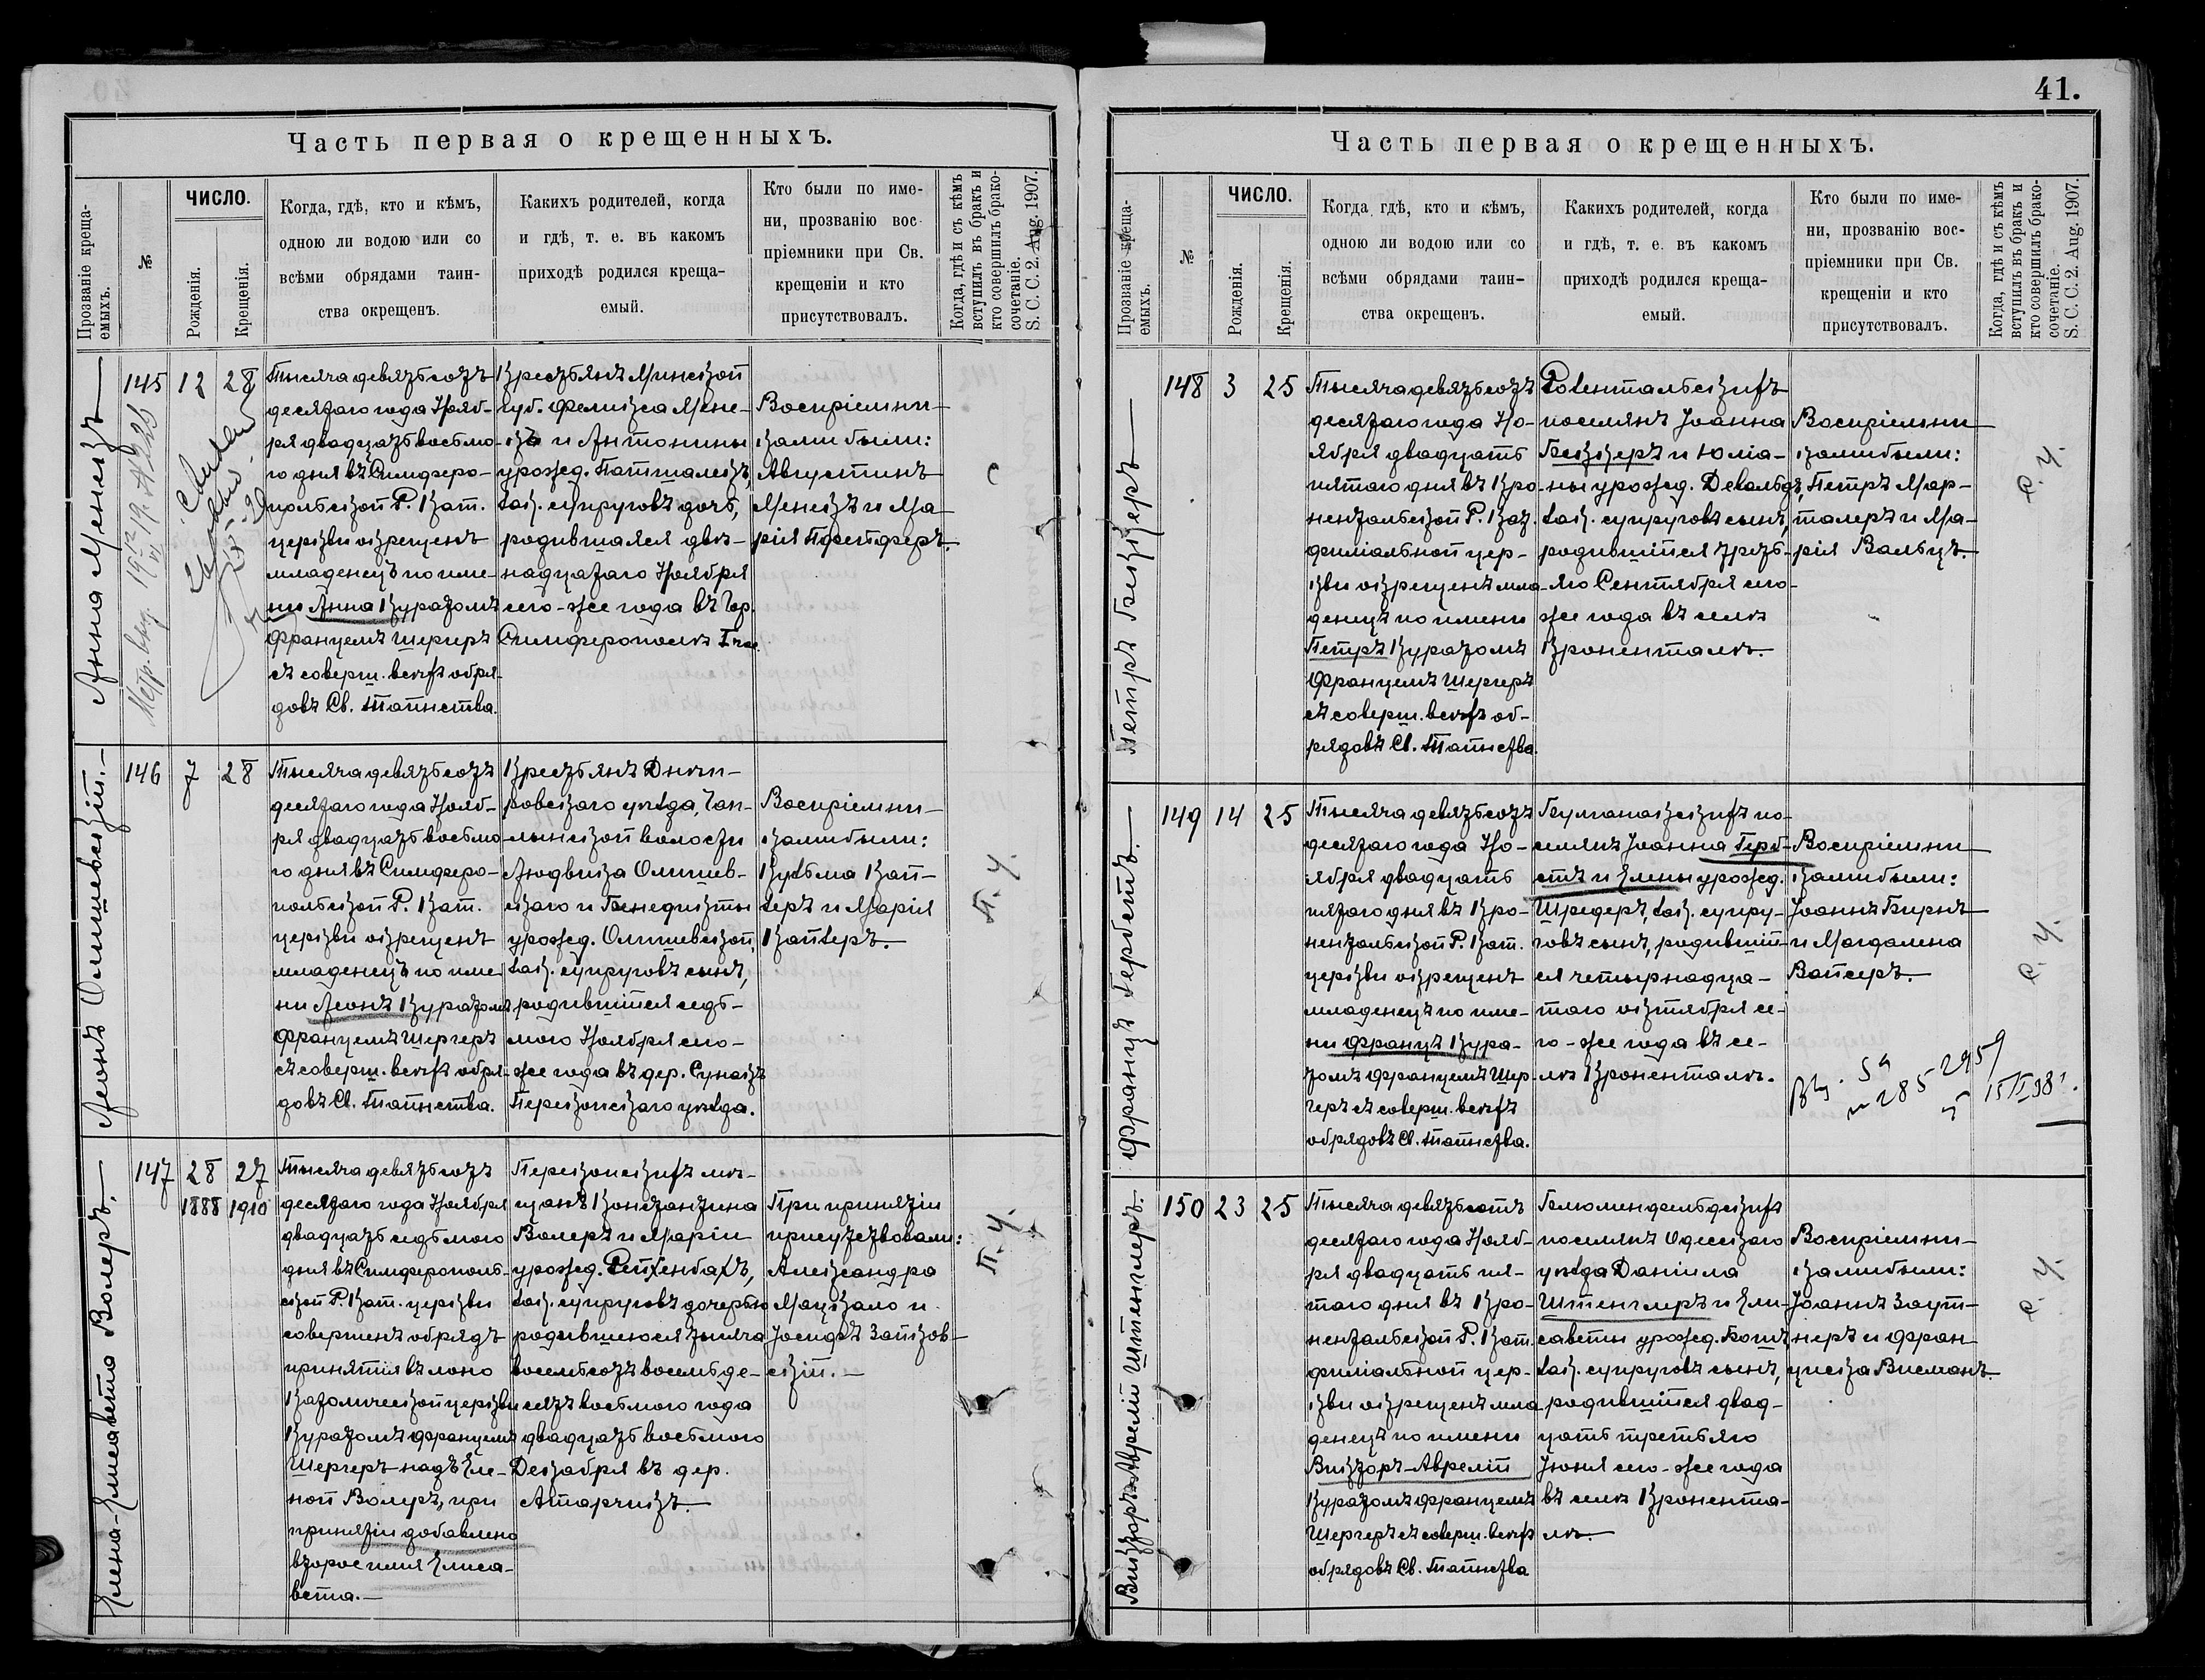 41.
Часть первая о крещенныхъ.
Прозваніе креща-
емыхъ.
№
ЧИСЛО.
Рожденія.
Крещенія.
Когда, гдѣ, кто и кѣмъ,
одною ли водою или со
всѣми обрядами таин-
ства окрещенъ.
Какихъ родителей, когда
и гдѣ, т. е. въ какомъ
приходѣ родился креща-
емый.
Кто были по име-
ни, прозванію вос-
пріемники при Св.
крещеніи и кто
присутствовалъ.
Когда, гдѣ и съ кѣмъ
вступилъ въ бракъ и
кто совершилъ брако-
сочетаніе.
S. C. C. 2. Aug. 1907.
Анна Менсикъ
145 12 28
Тысяча девятьсотъ
десятаго года Нояб-
ря двадцать восьмо-
го дня въ Симферо-
польской Р. Кат.
церкви окрещенъ
младенецъ по име-
ни Анна Куратомъ
Францемъ Шергеръ
съ соверш. всѣхъ обря-
довъ Св. Таинства.
Крестьянъ Минской
губ. Феликса Мене-
и Антонины
урожд.
зак. супруговъ дочь,
родившаяся двѣ-
надцатаго Ноября
сего-же года въ гор.
Симферополѣ
Воспріемни-
ками были:
Августинъ
и Ма
рія
Леонъ Олишевскій.
146 7 28
Тысяча девятьсотъ
десятаго года Нояб-
ря двадцать восьмо
го дня въ Симферо-
польской Р. Кат.
церкви окрещенъ
младенецъ по име
ни Леонъ Куратомъ
Францемъ Шергеръ
съ соверш. всѣхъ обря-
довъ Св. Таинства.
Крестьянъ Днѣп-
ровскаго уѣзда, Чап-
лынской волости
Людвика Олишев-
скаго и Бенедикты
урожд. Олишевской,
зак. супруговъ сынъ,
родившійся седь-
мого Ноября сего-
же года въ дер.
Перекопскаго уѣзда.
Воспріемни-
ками были:
Кузьма Кай-
зеръ и Марія
Кайзеръ.
П. Ч.
Елена-Елисавета Волеръ.
147 28 27
1888 1910
Тысяча девятьсотъ
десятаго года Ноября
двадцать седьмого
дня въ Симферополь-
ской Р. Кат. церкви
совершенъ обрядъ
принятія въ лоно
Католической церкви
Куратомъ Францемъ
Шергеръ надъ Еле-
ной Волеръ, при
принятіи добавлено
второе имя Елиса-
вета.
Перекопскихъ мѣ-
щанъ Константина
Волеръ и Маріи
урожд. Рейхенбахъ,
зак. супруговъ дочерью
родившеюся тысяча
восемьсотъ восемьде-
сятъ восьмого года
двадцать восьмого
Декабря въ дер.
Атарчикъ.
При принятіи
присутствовали:
Александра
Мацкало и
Іосифъ
скій.
П. Ч.
Часть первая о крещенныхъ.
Прозваніе креща-
емыхъ.
№
ЧИСЛО.
Рожденія.
Крещенія.
Когда гдѣ, кто и кѣмъ,
одною ли водою или со
всѣми обрядами таин-
ства окрещенъ.
Какихъ родителей, когда
и гдѣ, т. е. въ какомъ
приходѣ родился креща-
емый.
Кто были по име-
ни, прозванію вос-
пріемники при Св.
крещеніи и кто
присутствовалъ.
Когда, гдѣ и съ кѣмъ
вступилъ въ бракъ и
кто совершилъ брако-
сочетаніе.
S. C. C. 2. Aug. 1907.
Петръ Беккеръ
148 3 25
Тысяча девятьсотъ
десятаго года Но-
ября двадцать
пятаго дня въ Кро-
нентальской Р. Кат.
филіальной цер-
кви окрещенъ мла-
денецъ по имени
Петръ Куратомъ
Францемъ Шергеръ
съ соверш. всѣхъ об-
рядовъ Св. Таинства.
Розентальскихъ
поселянъ Іоанна
Беккеръ и Юліа-
ны урожд. Девальдъ,
зак. супруговъ сынъ,
родившійся треть-
яго Сентября сего-
же года въ селѣ
Кроненталѣ.
Воспріемни
ками были:
Петръ Мар-
талеръ и Ма-
рія Вальцъ.
Францъ Гербстъ.
149 14 25
Тысяча девятьсотъ
десятаго года Но-
ября двадцать
пятаго дня въ Кро-
нентальской Р. Кат.
церкви окрещенъ
младенецъ по име-
ни Францъ Кура-
томъ Францемъ Шер-
геръ съ соверш. всѣхъ
обрядовъ Св. Таинства.
по-
селянъ Іоанна Герб-
стъ и Елены урожд.
Шредеръ, зак. супру-
говъ сынъ, родившій-
ся четырнадца-
таго октября се-
го-же года въ се-
лѣ Кроненталѣ.
Воспріемни
ками были:
Іоаннъ Бирнъ
и Магдалена
Вайсеръ.
Викторъ-Аврелій Штенглеръ.
150 23 25
Тысяча девятьсотъ
десятаго года Нояб-
ря двадцать пя-
таго дня въ Кро-
нентальской Р. Кат.
филіальной цер-
кви окрещенъ мла
денецъ по имени
Викторъ-Аврелій
Куратомъ Францемъ
Шергеръ съ соверш. всѣхъ
обрядовъ Св. Таинства
Блюменфельдскихъ
поселянъ Одесскаго
уѣзда Даніила
Штенглеръ и Ели-
саветы урожд.
зак. супруговъ сынъ,
родившійся двад-
цать третьяго
Іюня сего-же года
въ селѣ Кронента-
лѣ.
Воспріемни-
ками были:
Іоаннъ Заут-
неръ и Фран
циска Висманъ.